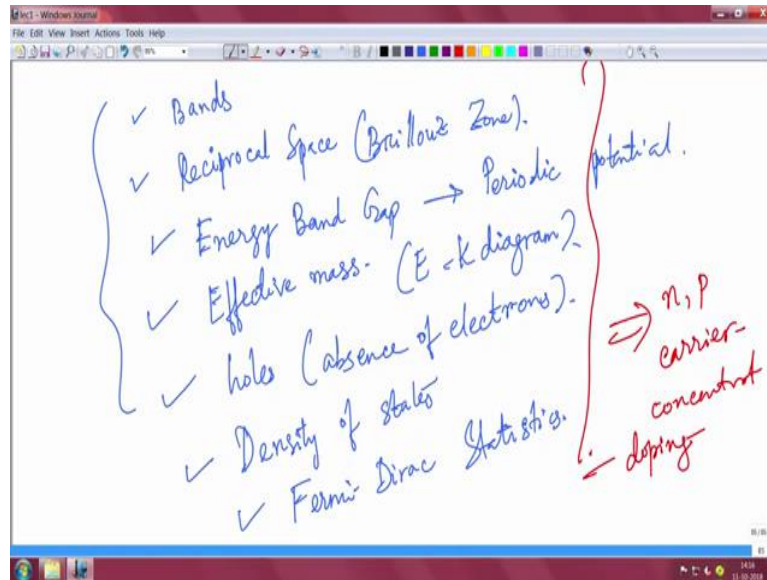 lec1 - Windows Journal
File Edit View Insert Actions Tools Help
✓ Bands
✓ Reciprocal Space (Brillouiz Zone).
✓ Energy Band Gap → Periodic potential.
✓ Effective mass. (E-k diagram)
✓ holes (absence of electrons).
✓ Density of states
✓ Fermi Dirac Statistics.
⇒ n, p
carrier-
concentrat
← doping
14:16
11-10-2018